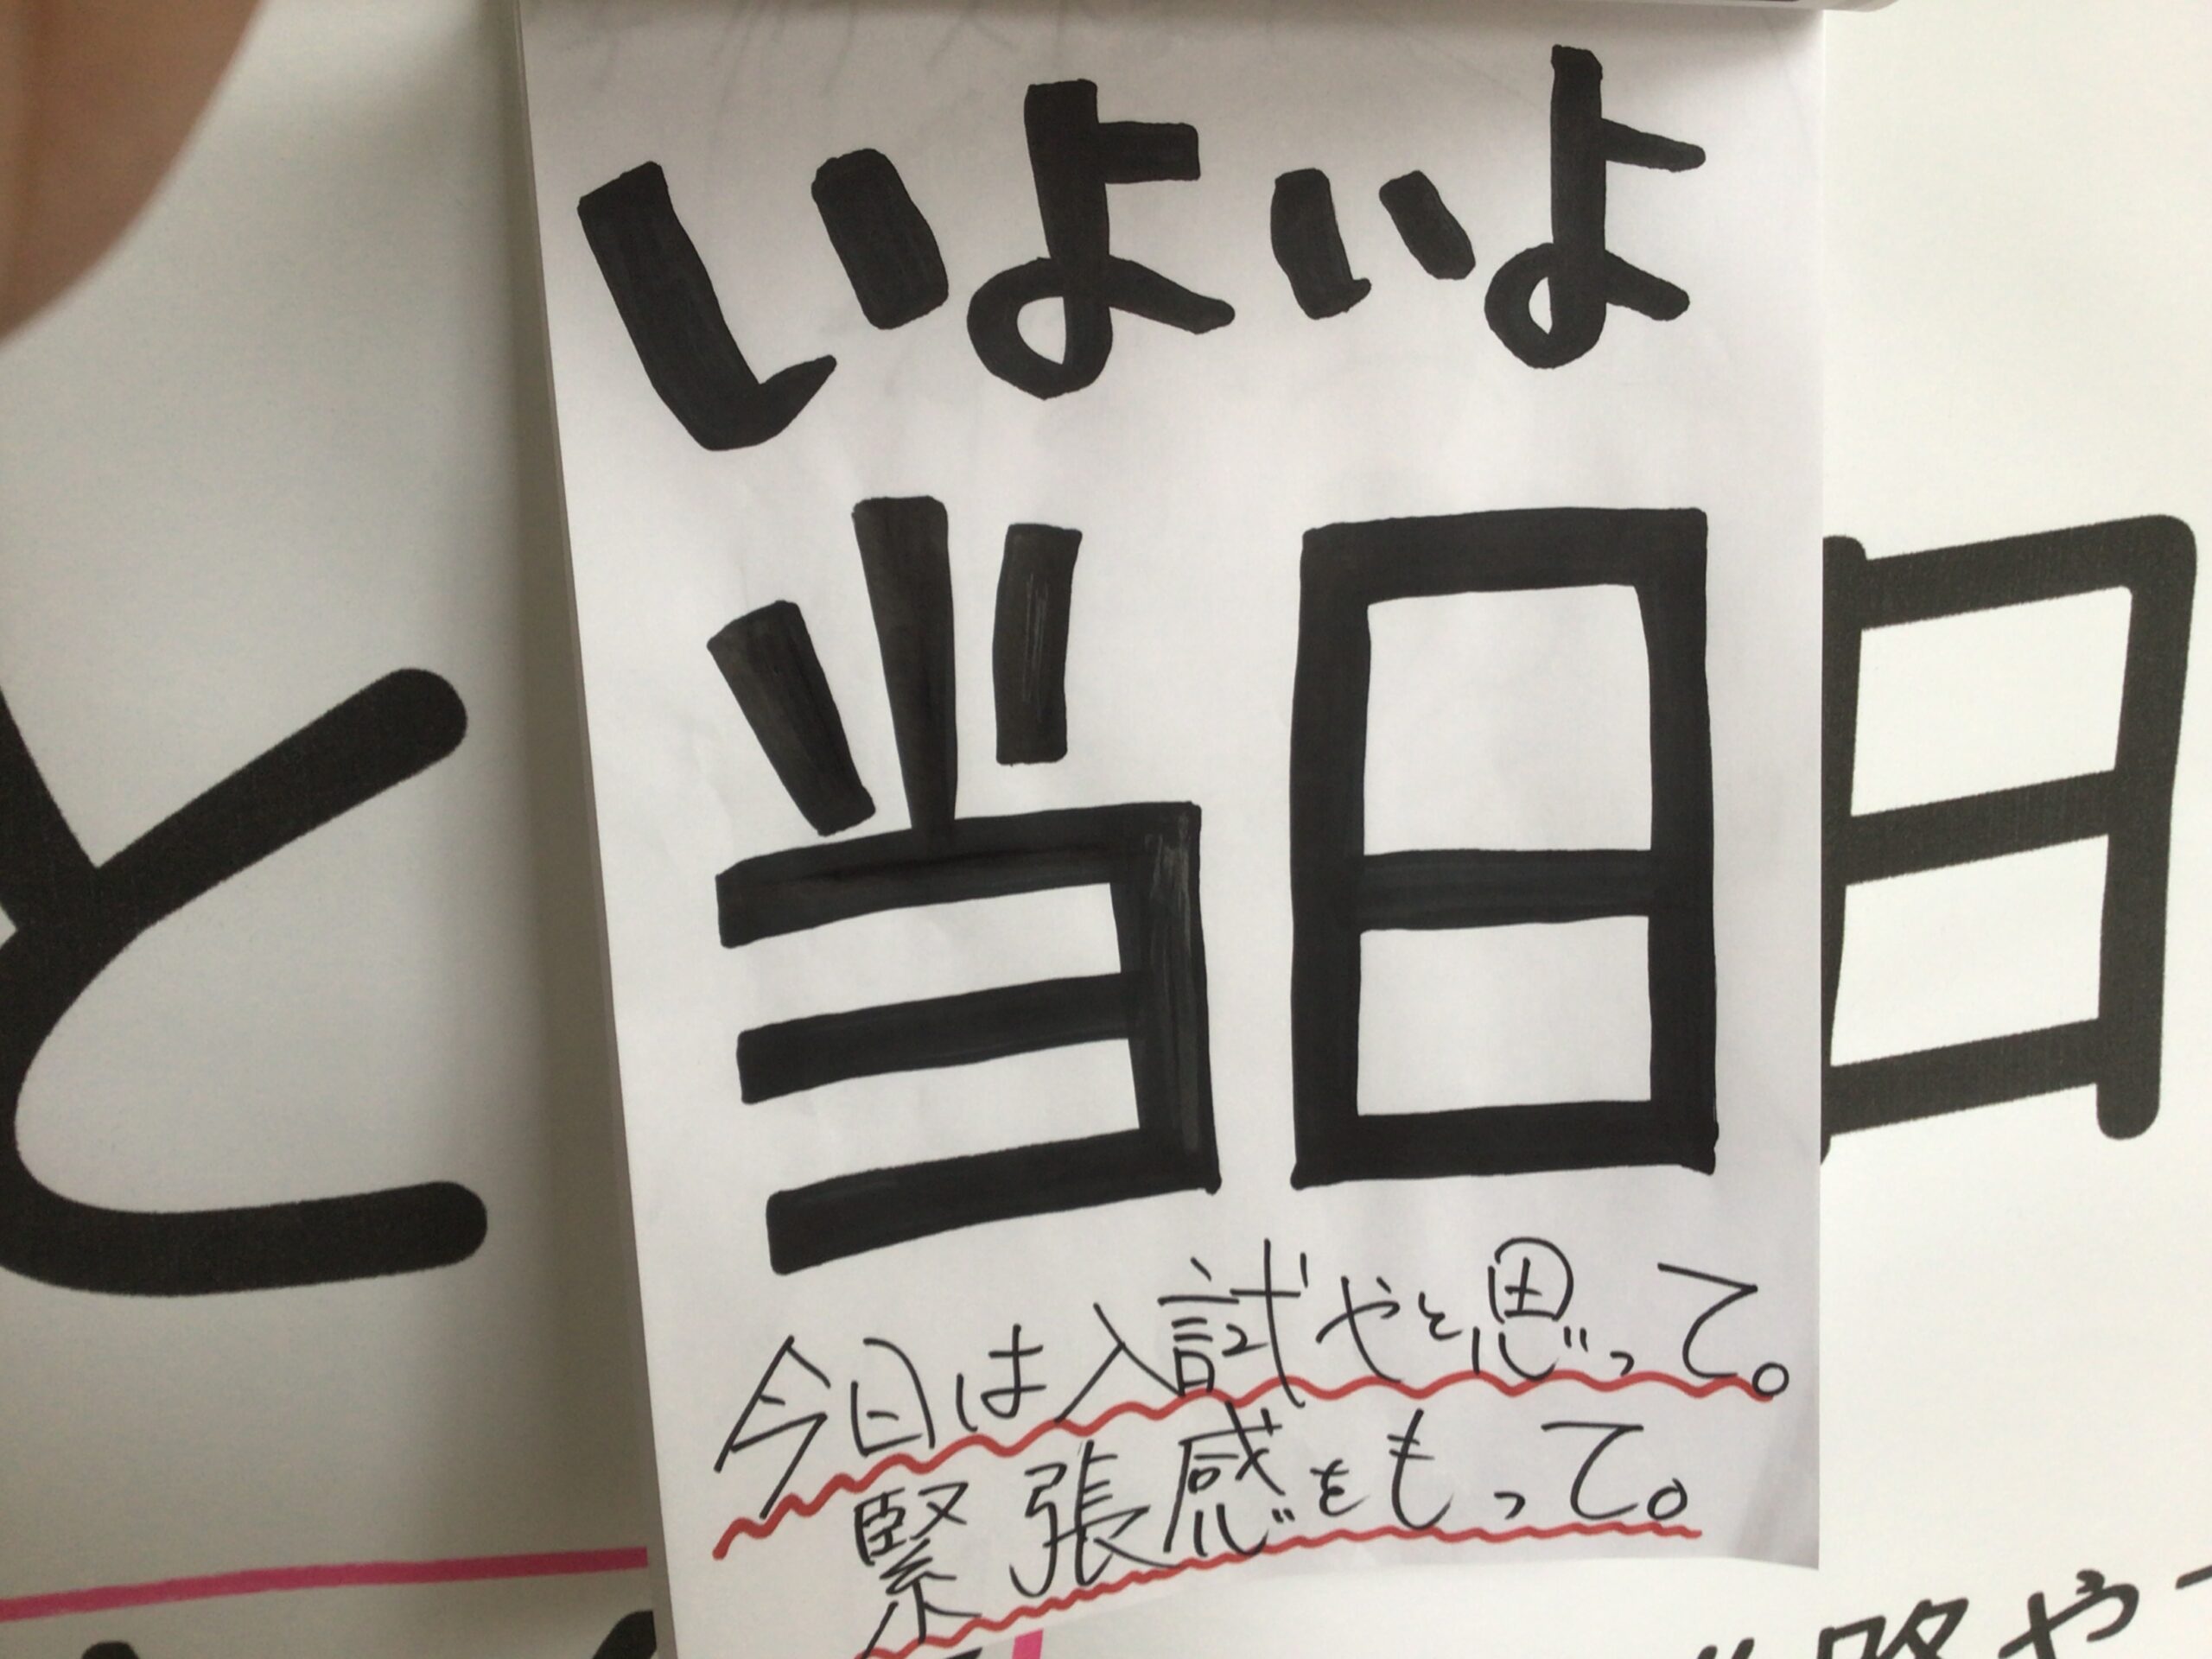 いよいよ
当日
今日は入試やと思って。
緊張感をもって。
と
日